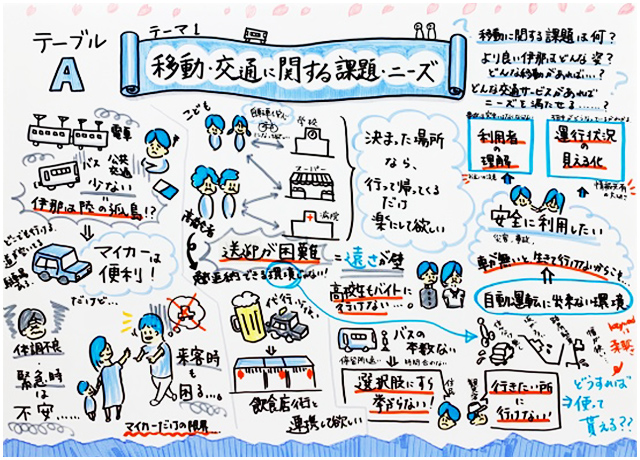 テーブル
A
テーマ1
移動・交通に関する課題・ニーズ
移動に関する課題は何？
より良い伊那はどんな姿？
どんな移動があれば…？
どんな交通サービスがあれば
ニーズを満たせる……？
電車
バス
公共
交通
少ない
伊那は陸の孤島!?
マイカーは
便利！
だけど…
体調不良
緊急時
は
不安……
来客時
も
困る…。
マイカーだけの限界…
こども
学校
スーパー
病院
高齢者
送迎が困難
決まった場所
なら、
行って帰ってくる
だけ
楽にして欲しい
=遠さが壁
高校生もバイトに
行けない…
飲食店街と
連携して欲しい
バスの
本数ない
選択肢にすら
挙がらない！
利用者
の
理解
運行状況
の
見える化
安全に利用したい
車が無いと生きて行けないからこそ…
自動運転に出来ない環境
行きたい所
に
行けない！
どうすれば
使って
貰える??